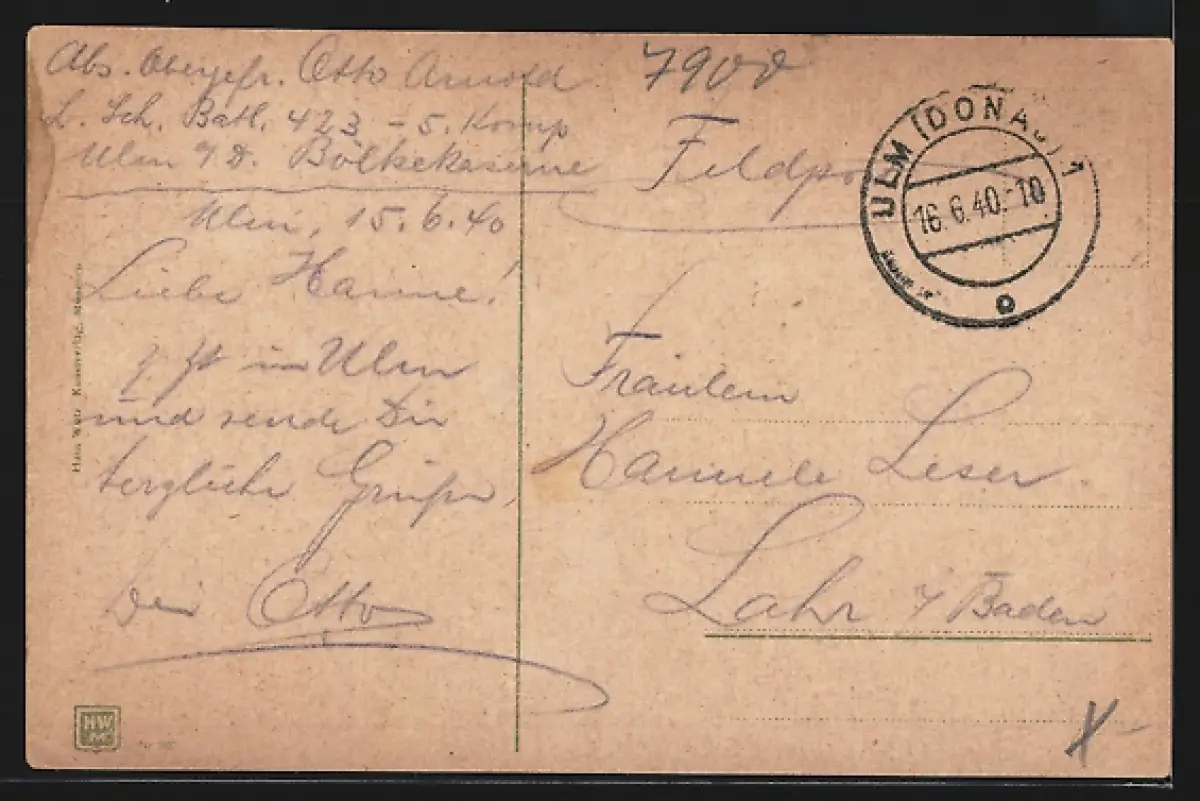 Abs. Obergefr. Otto Arnold
L. Sch. Batl. 423 - 5. Komp
Ulm a/D. Bölkekaserne
Ulm, 15.6.40
Liebe Hanne!
z. Zt. in Ulm
und sende Dir
herzliche Grüße,
Dein Otto
7900
Feldpost
ULM (DONAU) 1
16.6.40.-10
Fräulein
Hannele Leser
Lahr i/Baden
X
HWM